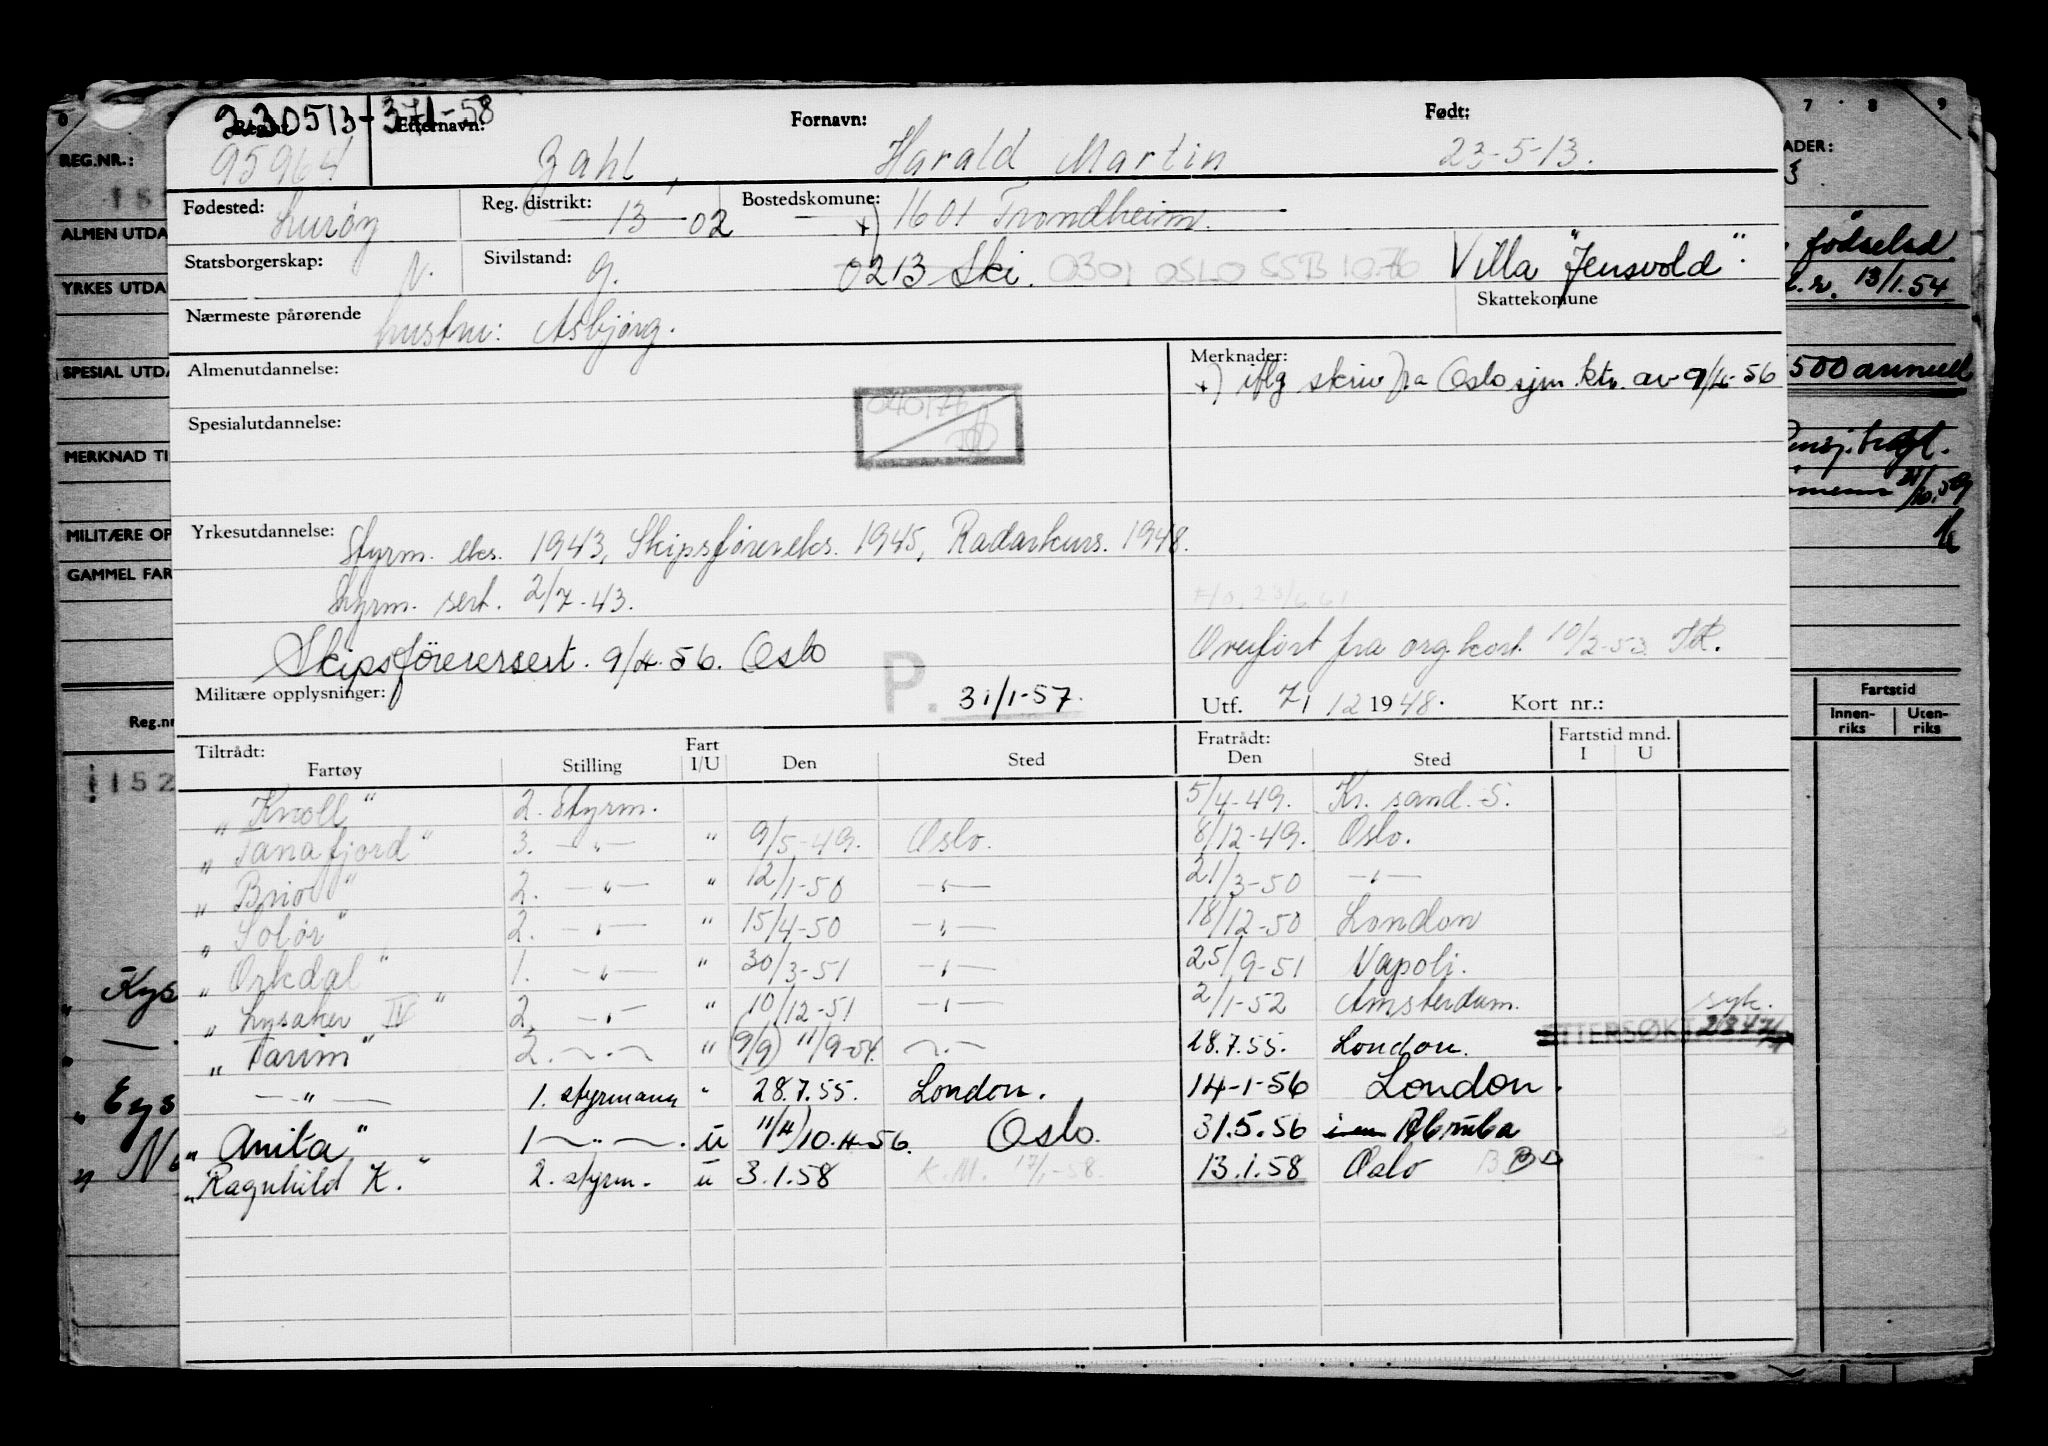 230513-371-58
Reg.nr. Etternavn: Fornavn: Født:
95964 Zahl, Harald Martin 23-5-13.
Fødested: Lurøy Reg. distrikt: 13 02 Bostedskomune: +) 1601 Trondheim.
Statsborgerskap: N. Sivilstand: g. 0213 Ski. 0301 OSLO SSB 10.76 Villa "Jensvold".
Skattekomune
Nærmeste pårørende hustru: Asbjørg.
Almenutdannelse:
Merknader: +) iflg skriv fra Oslo sjm. ktr. av 9/4-56
040176
Spesialutdannelse:
Yrkesutdannelse: Styrm. eks. 1943, Skipsførereks. 1945, Radarkurs. 1948.
Styrm. sert. 2/7-43.
Skipsførersert. 9/4.56. Oslo
Overført fra org. kort. 10/2-53.
Militære opplysninger: P. 31/1-57.
Utf. 7/12 1948. Kort nr.:
Tiltrådt: Fratrådt: Fartstid mnd.
Fartøy Stilling Fart I/U Den Sted Den Sted I U
"Knoll" 2. Styrm. 5/4-49. Kr. sand. S.
"Tanafjord" 3. —"— " 9/5-49. Oslo. 8/12-49. Oslo.
"Brio" 2. —"— " 12/1-50 —"— 21/3-50 —"—
"Solør" 2. —"— " 15/4-50 —"— 18/12-50 London
"Orkdal" 1. —"— " 30/3-51 —"— 25/9-51 Napoli.
"Lysaker IV" 2. —"— " 10/12-51 —"— 2/1-52 Amsterdam. syk.
"Tarim" 2. —"— " (9/9) 11/9-54. —"— 28.7.55. London. ETTERSØKT
—"— 1. styrmann " 28.7.55. London. 14-1-56 London.
"Anita" 1 —"— . u 11/4) 10.4-56. Oslo. 31.5.56 Abruba
"Ragnhild K." 2. styrm. u 3.1.58 K.M. 17/1-58. 13.1.58 Oslo
REG.NR.:
ALMEN UTDA
YRKES UTDA
SPESIAL UTDA
MERKNAD TI
MILITÆRE OP
GAMMEL FAR
Reg.nr
152
" Kys
" Eys
" N
7 8 9
ADER:
fødselsd
13/1.54
500 annuell
Fartstid
Innen-riks Uten-riks